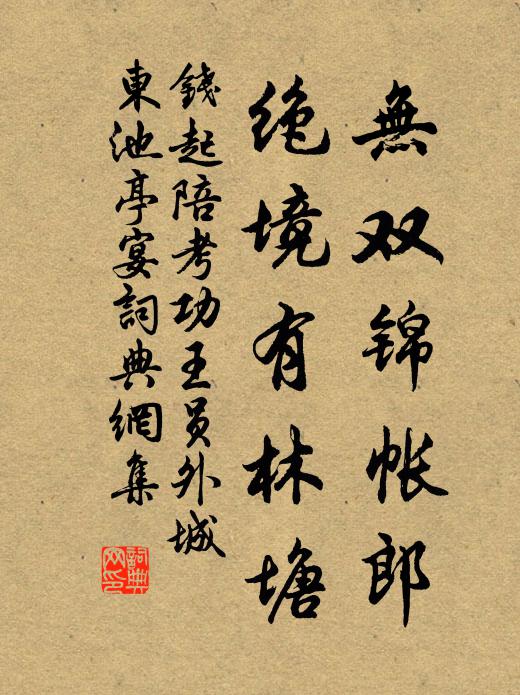 無双锦帐郎
绝境有林塘
錢起陪考功王员外城
東池亭宴詞典網集
詞典
网印